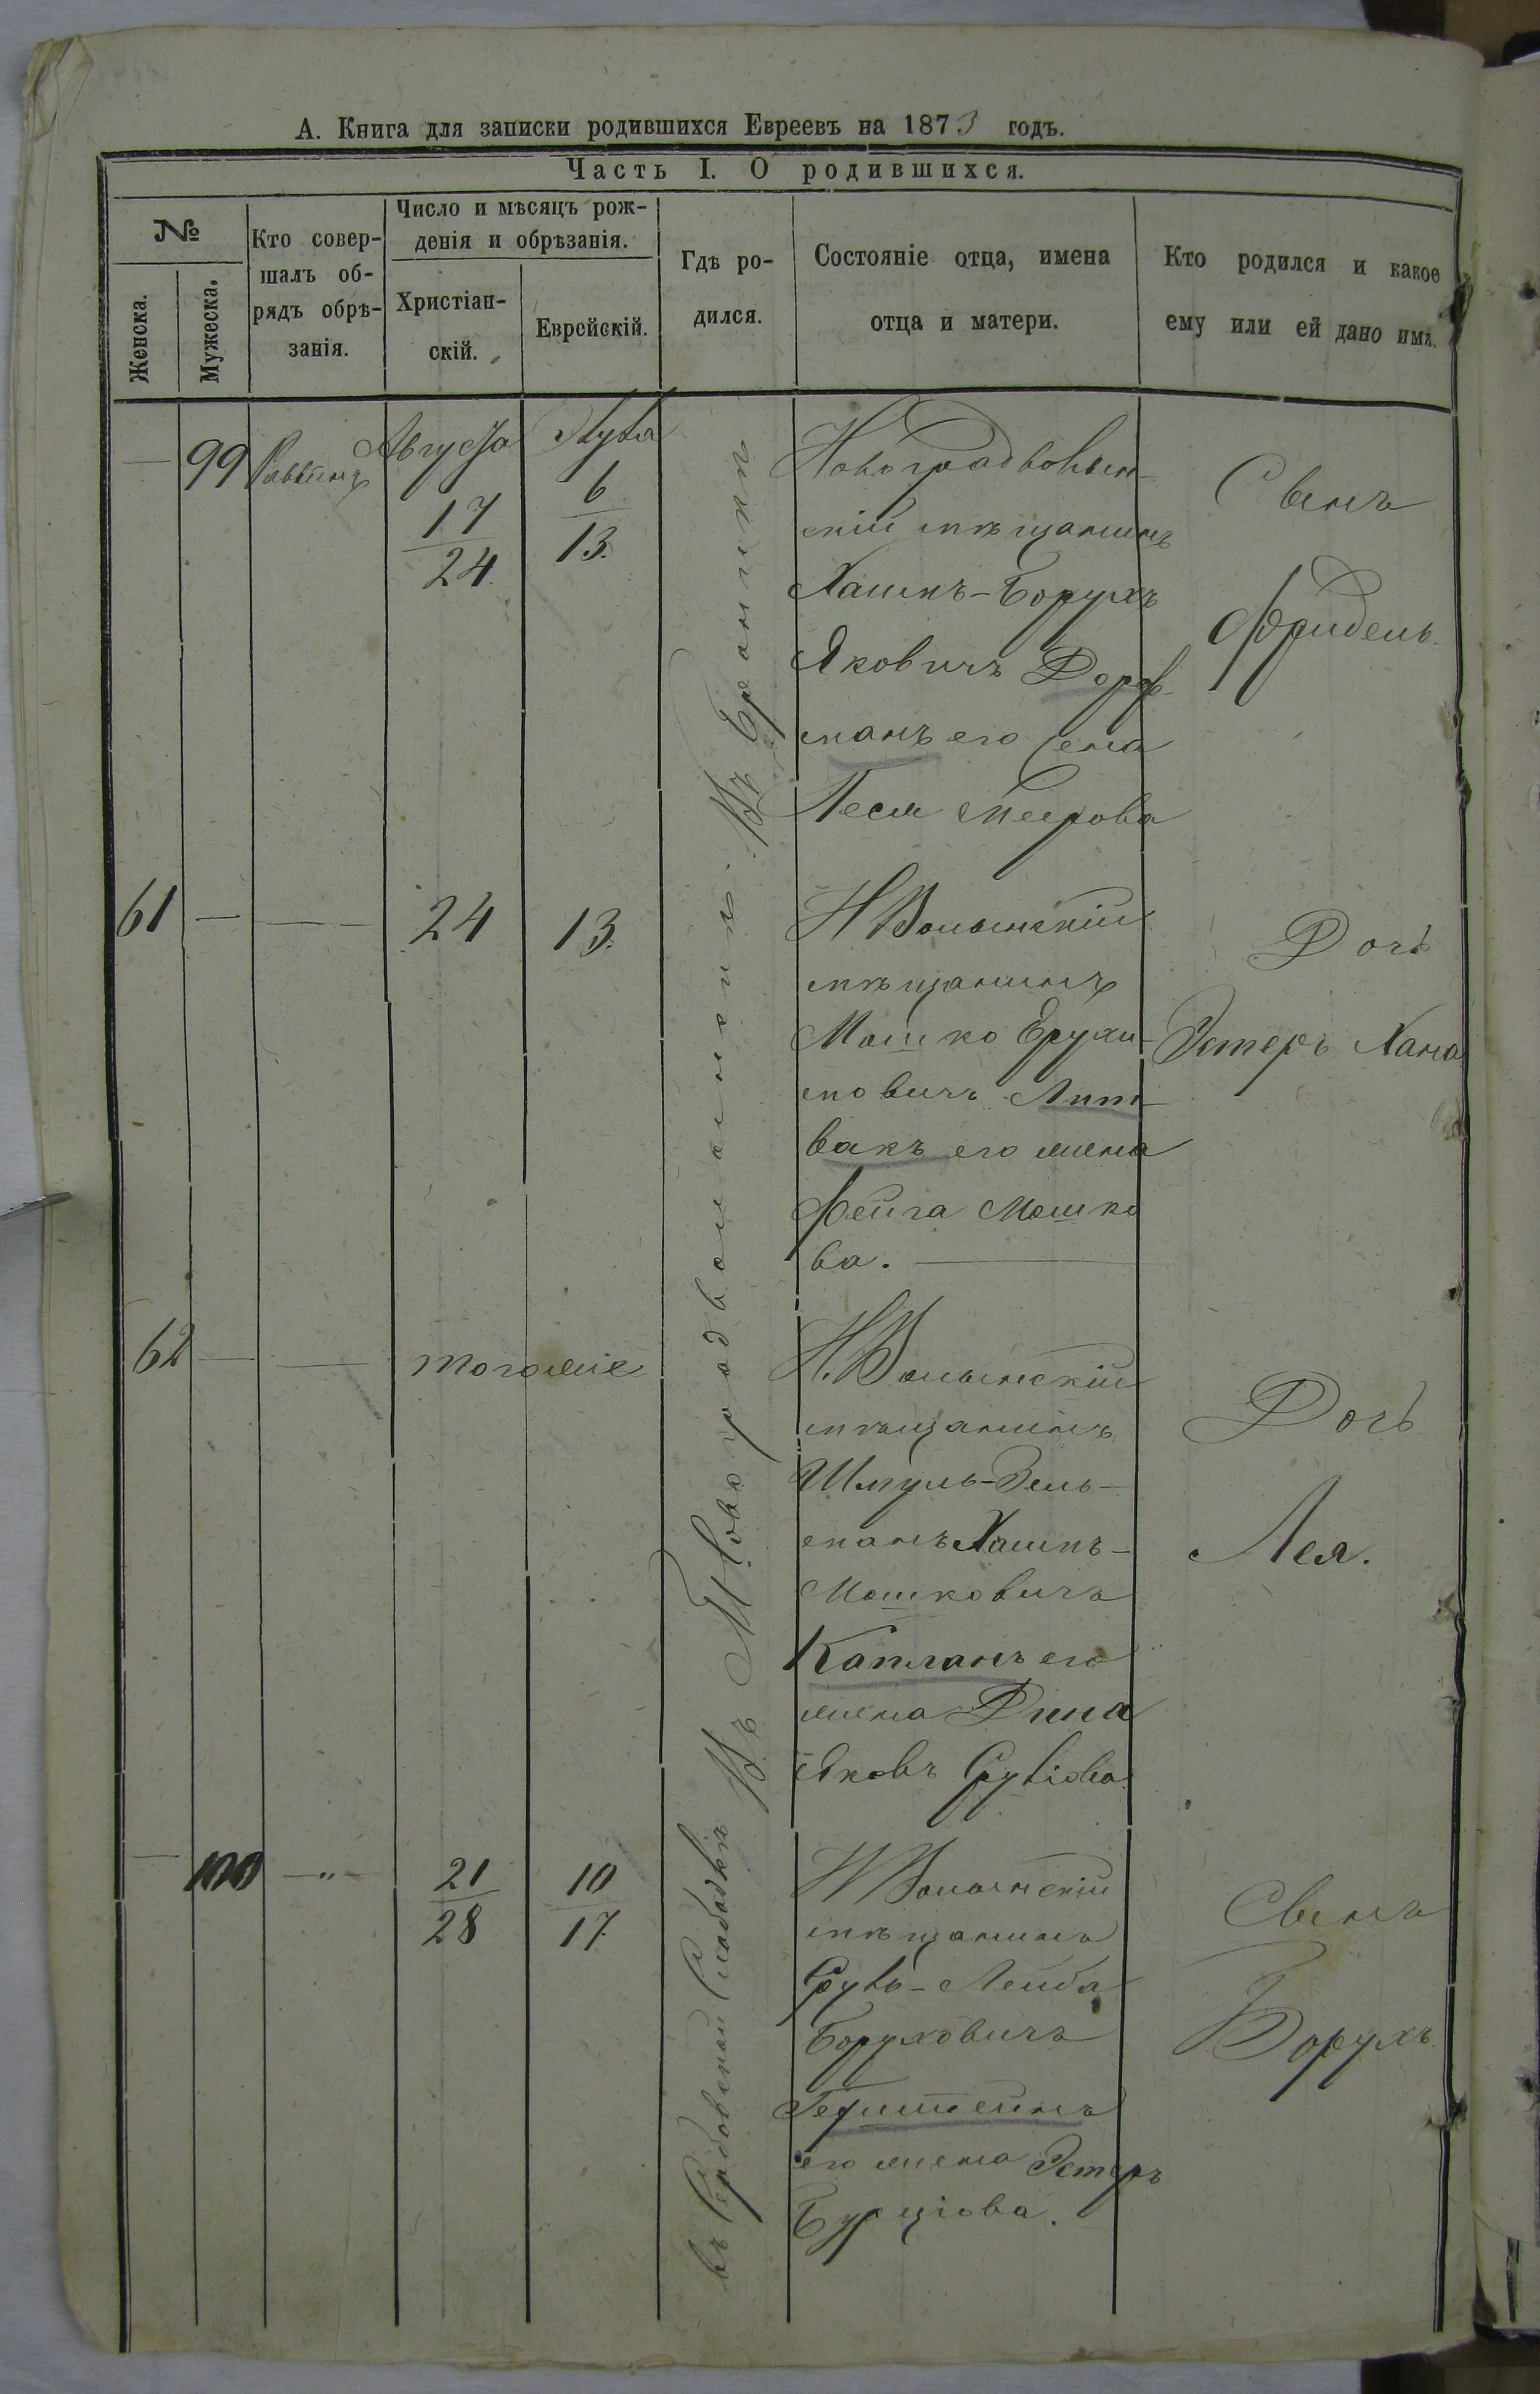 А. Книга для записки родившихся Евреевъ на 1873 годъ.
Часть I. О родившихся.
№
Женска.
Мужеска.
Кто совер-
шалъ об-
рядъ обрѣ-
занія.
Число и мѣсяцъ рож-
денія и обрѣзанія.
Христіан-
скій.
Еврейскій.
Гдѣ ро-
дился.
Состояніе отца, имена
отца и матери.
Кто родился и какое
ему или ей дано имя.
— 99 Раввинъ
Августа
17
24.
6
13.
въ Браникѣ
Новоградволын-
скій мѣщанинъ
Хаимъ-Борухъ
Яковичъ Дорф-
манъ его жена
Песя Меерова
Сынъ
Фридель.
61 — — 24 13.
въ Новоградволынскѣ.
НВолынскій
мѣщанинъ
Мошко Ерухи-
мовичъ Лит-
вакъ его жена
Фейга Мошко
ва. —
Дочь
Эстеръ Хана
62 — — тогожъ
Н.Волынскій
мѣщанинъ
Шмуль-Зель-
манъ Хаимъ-
Мошковичъ
Капланъ его
жена Дина
Яковъ Сруліова
Дочь
Лея.
— 100 —„—
21
28
10
17.
въ Слободкѣ
НВолынскій
мѣщанинъ
Сруль-Лейба
Боруховичъ
Герштейнъ
его жена Эстеръ
Бурціова.
Сынъ
Борухъ.